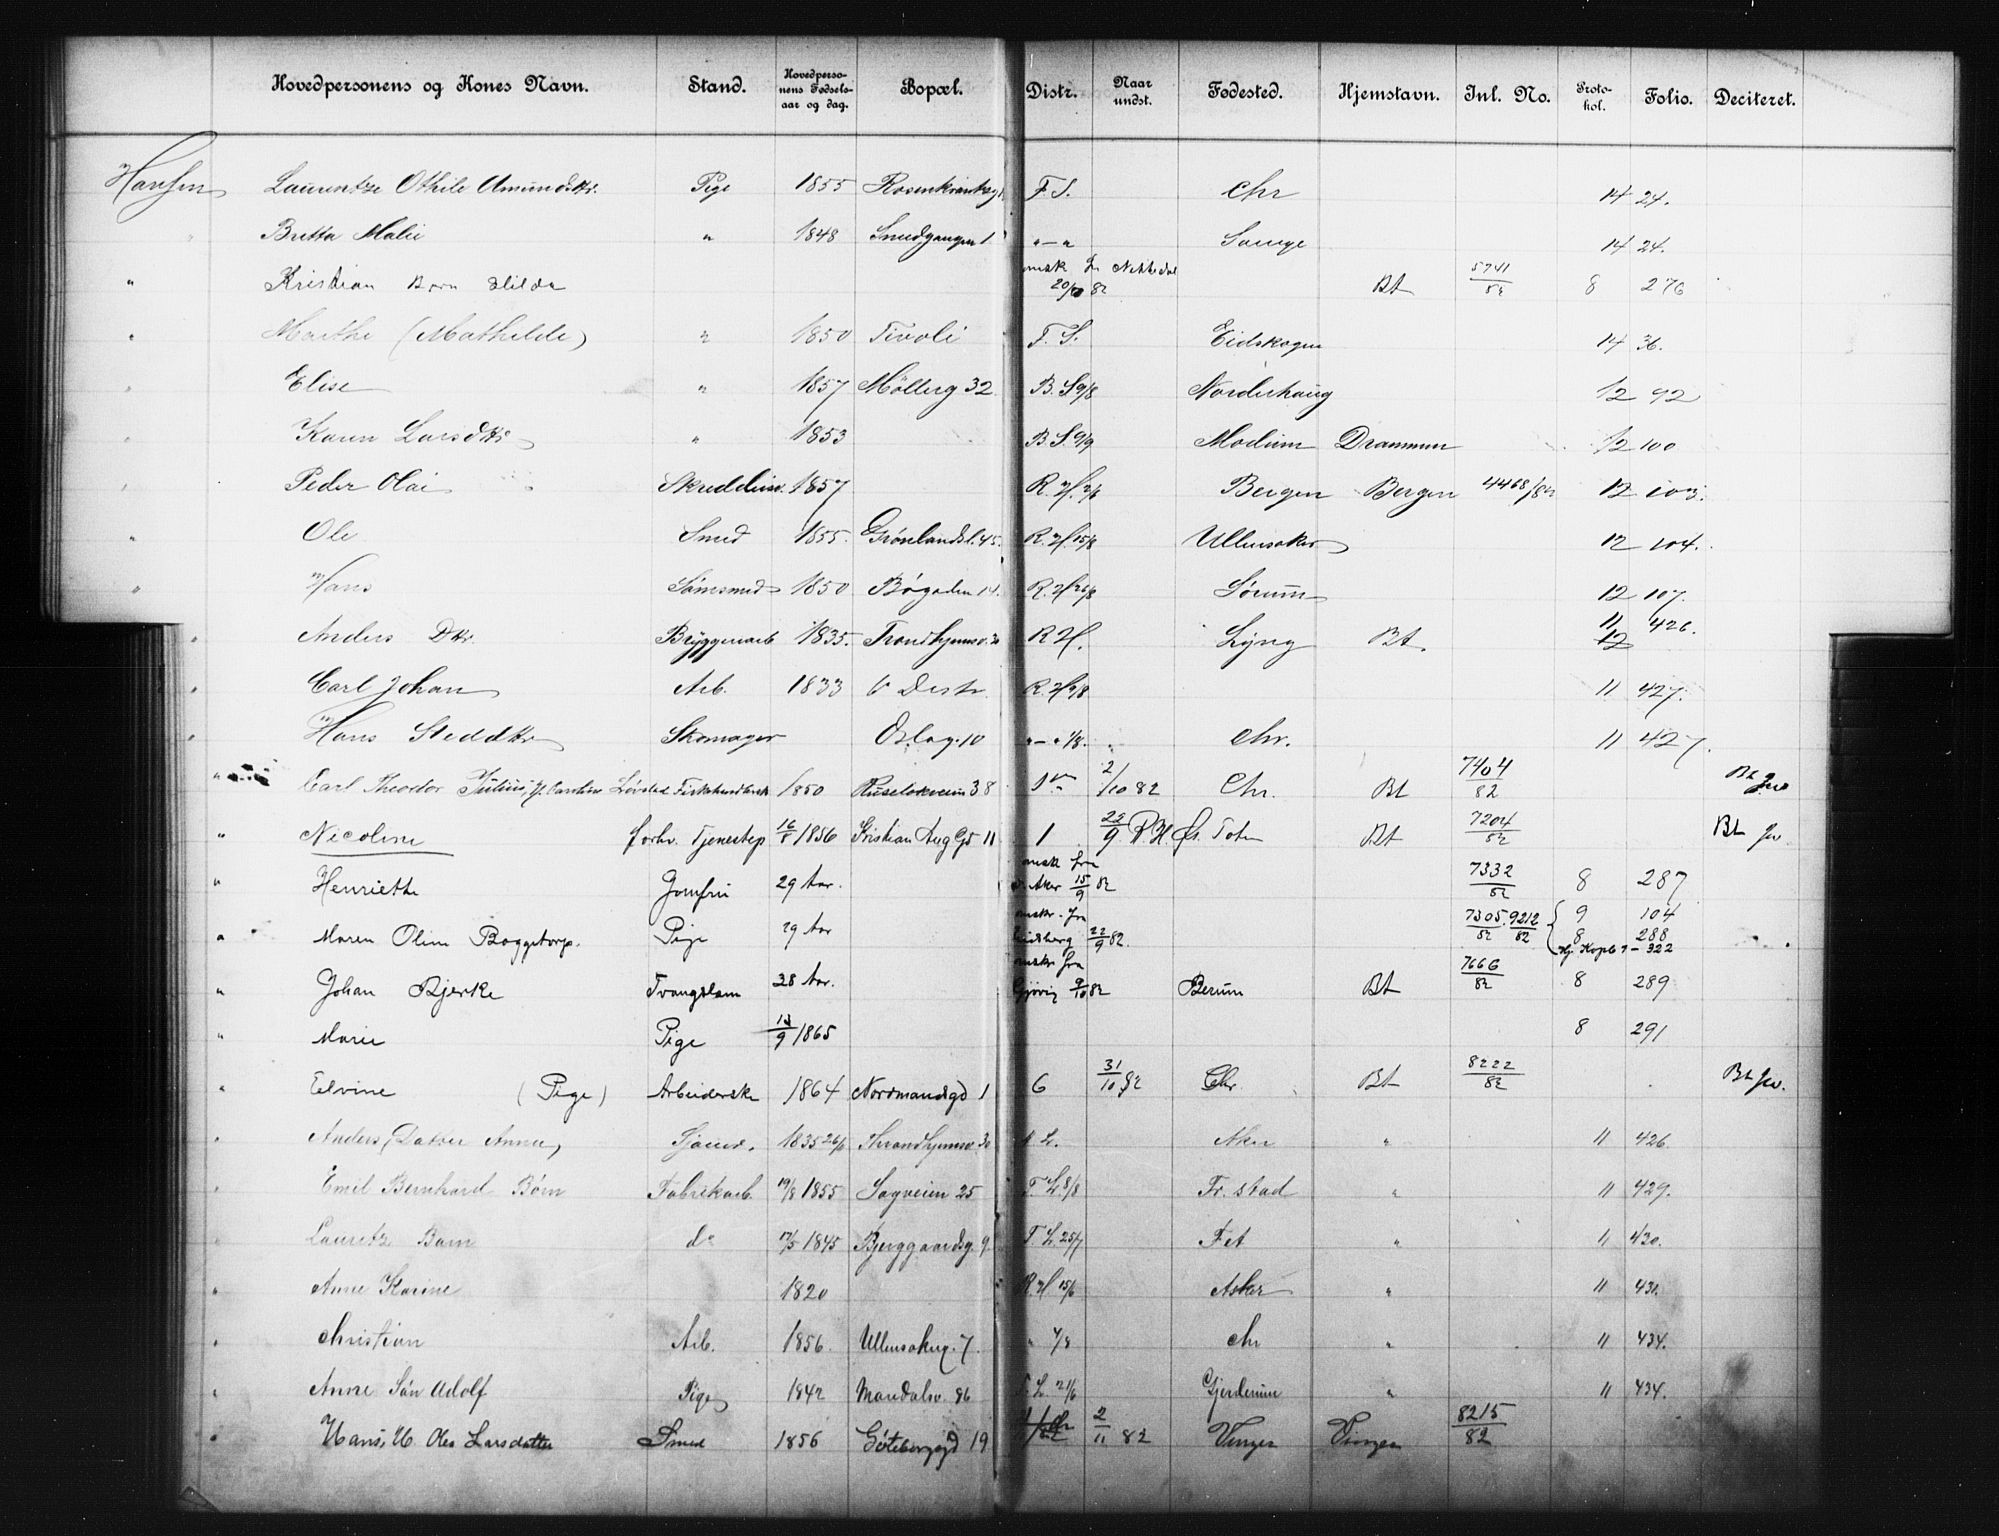 Hovedpersonens og Kones Navn. Stand. Hovedperso-nens Fødsels-aar og dag. Bopæl. Distr. Naar undst. Fødested. Hjemstavn. Inl. No. Proto-kol. Folio. Deciteret.
Hansen Laurentze Othile Amundsdtr. Pige 1855 Rosenkrantzg F S. Chr 14 24.
" Britta Malie " 1848 Smedgangen 1 "-" 14 24.
" Kristian Barn Hilda omsk fr Nittedal 20/10 82 Bt 5741/82 8 276
" Marthe (Mathilde) " 1850 Tivoli F. S. Eidskogen 14 36.
" Elise " 1857 Möllerg 32 B. S 9/8 Norderhaug 12 92
" Karen Larsdtr " 1853 B S. 9/9 Modum Drammen 12 100
" Peder Olai Skreddersv. 1857 R. H. Bergen Bergen 4468/82 12 103.
" Ole Smed 1855. Grønlandsl. 45. R. H. 15/8 Ullensaker 12 104.
" Hans Sömsmed 1850 Bögaden 14. R. H 26/8 Sörum 12 107.
" Anders Dtr. Bryggeriarb 1835. Trondhjemsv. 30 R H. Lyng Bt. 11 12 426.
" Carl Johan Arb. 1833 V Distr R. H 9/8 11 427.
" Hans Steddtr Skomager Oslog. 10 "-" 1/8. Chr. 11 427.
" Carl Theodor Julius, H. Caroline Lövsted Fiskehandlersk 1850 Ruselökveien 38 1 2/10 82 Chr. Bt 7404/82 Bt Jw
" Nicoline forhv. Tjenestep 16/8 1856 Kristian Aug Gd 11 1 22/9 R. H. Ös. Toten Bt 7204/82 Bt Jw
" Henriette Jomfru 29 Aar. omsk fra V. Aker 15/9 82 7332/82 8 287
" Maren Oline Baggetorp. Pige 29 Aar omskr. fra Eidsberg 22/9 82. 7305/82. 9212/82 9 104 8 288 Hj. Kopb 7 - 322
" Johan Bjerke Tvangslem 28 Aar. omskr fra Gjövig 9/10 82 Berum Bt 7666/82 8 289
" Marie Pige 13/9 1865 8 291
" Elvine (Pige) Arbeiderske 1864 Normandsgd 1 6 31/10 82 Chr. Bt 8222/82 Bt Jw.
" Anders, Datter Anna, Sjauer. 1835 26/6 Throndhjemsv. 30 L. Aker " 11 426.
" Emil Bernhard Börn Fabrikarb. 19/8 1855 Sagveien 25 F. L. 8/8 Fr. stad " 11 429.
" Lauretz Barn do 17/5 1845 Bjerggaardsg. 9. F. L. 25/7 Fet " 11 430.
" Anne Karine 1820 R. H 15/6 Asker " 11 431.
" Christian Arb. 1856. Ullensakerg. 7. " 4/8 Chr " 11 434.
" Anne Sön Adolf Pige 1842 Mandalsv. 86 F. L. 21/6 Gjerdrum " 11 434.
" Hans, H. Olea Larsdatter Smed 1856 Göteborgsgd 19 2/11 82 Vinger Vinger 8215/82